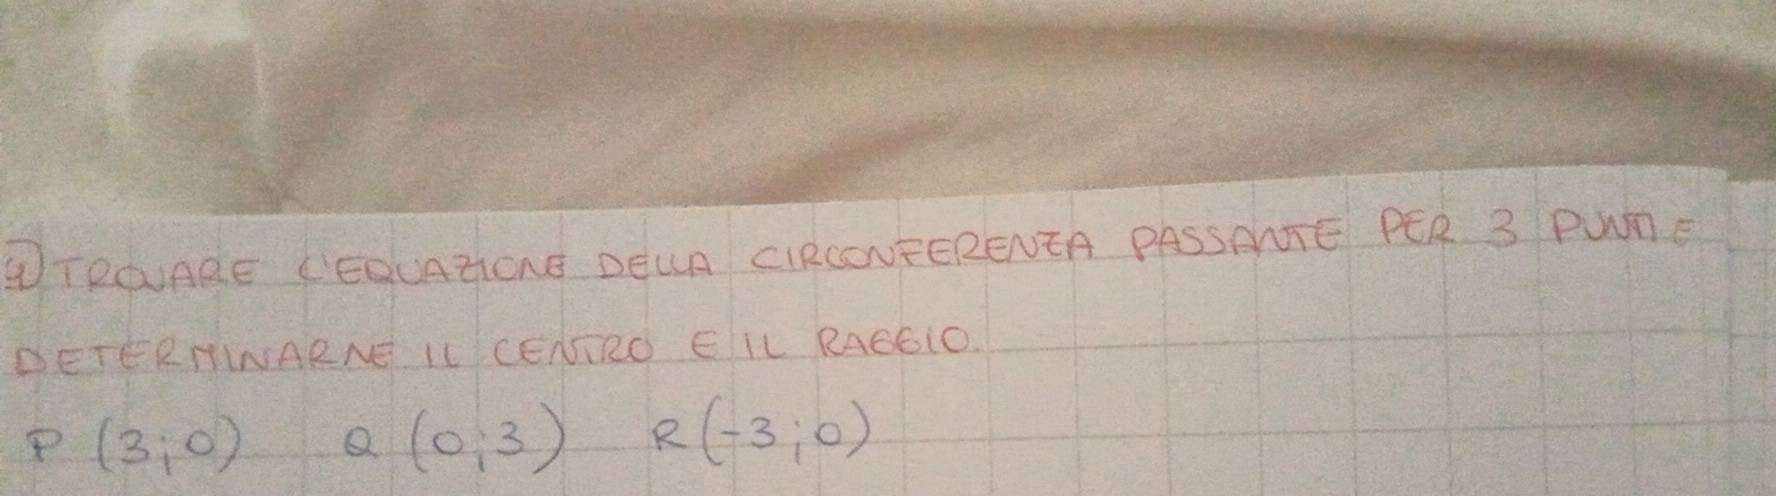 4) TROVARE L'EQUAZIONE DELLA CIRCONFERENZA PASSANTE PER 3 PUNTI E
DETERMINARNE IL CENTRO E IL RAGGIO.
P (3;0) Q (0;3) R (-3;0)